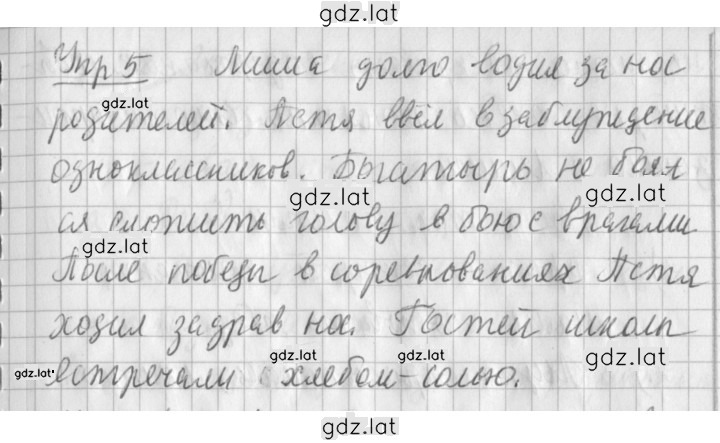 gdz.lat
Упр 5 Миша долго водил за нос
gdz.lat
родителей. Петя ввёл в заблуждение
одноклассников. Богатырь не боял
gdz.lat gdz.lat
ся сложить голову в бою с врагами
gdz.lat
После победы в соревнованиях Петя
gdz.lat
ходил задрав нос. Гостей школы
gdz.lat gdz.lat gdz.lat
gdz.lat встречали с хлебом-солью.
gdz.lat